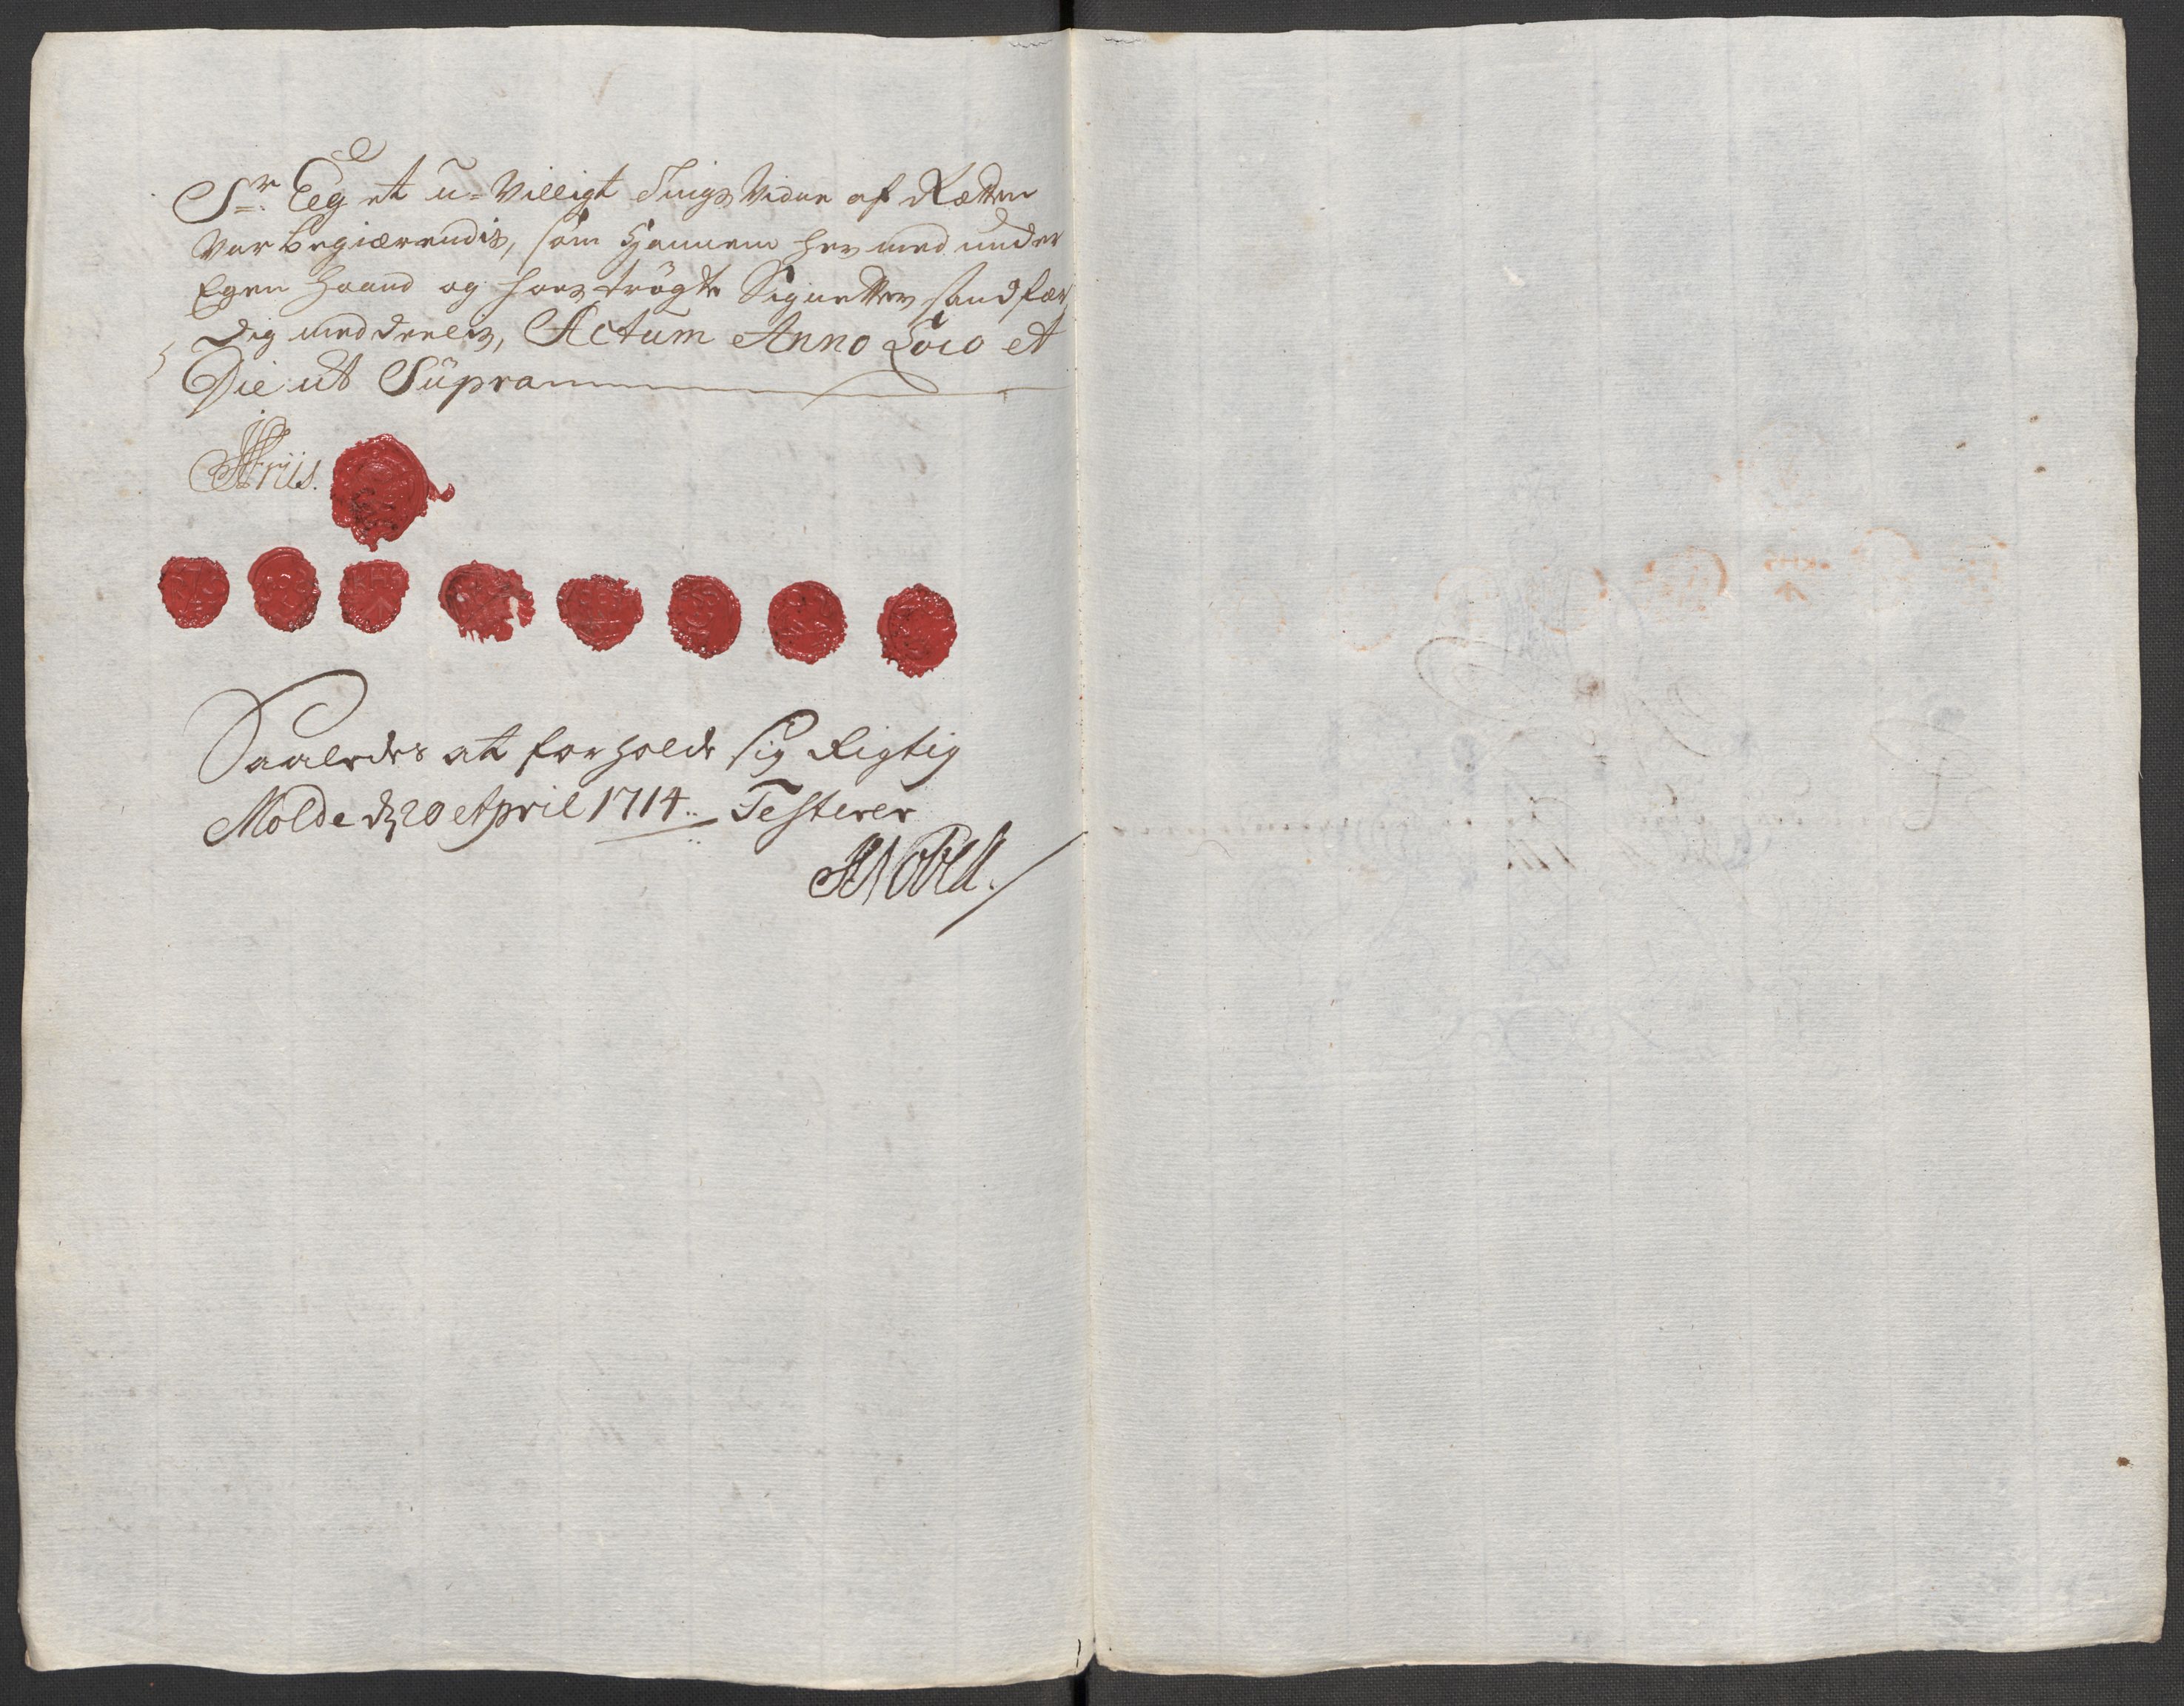 Sr: Eeg et u-Villigt Tings Vidne af Rætten
var begiærendis, som Hannem her med under
Egen Haand og hos trögte Signetter sandfær,
dig meddeelis, Actum Anno Loco et
Die ut Supra
Friis.
Saaledes at forholde sig Rigtig
Molde d 20 April 1714. Testerer